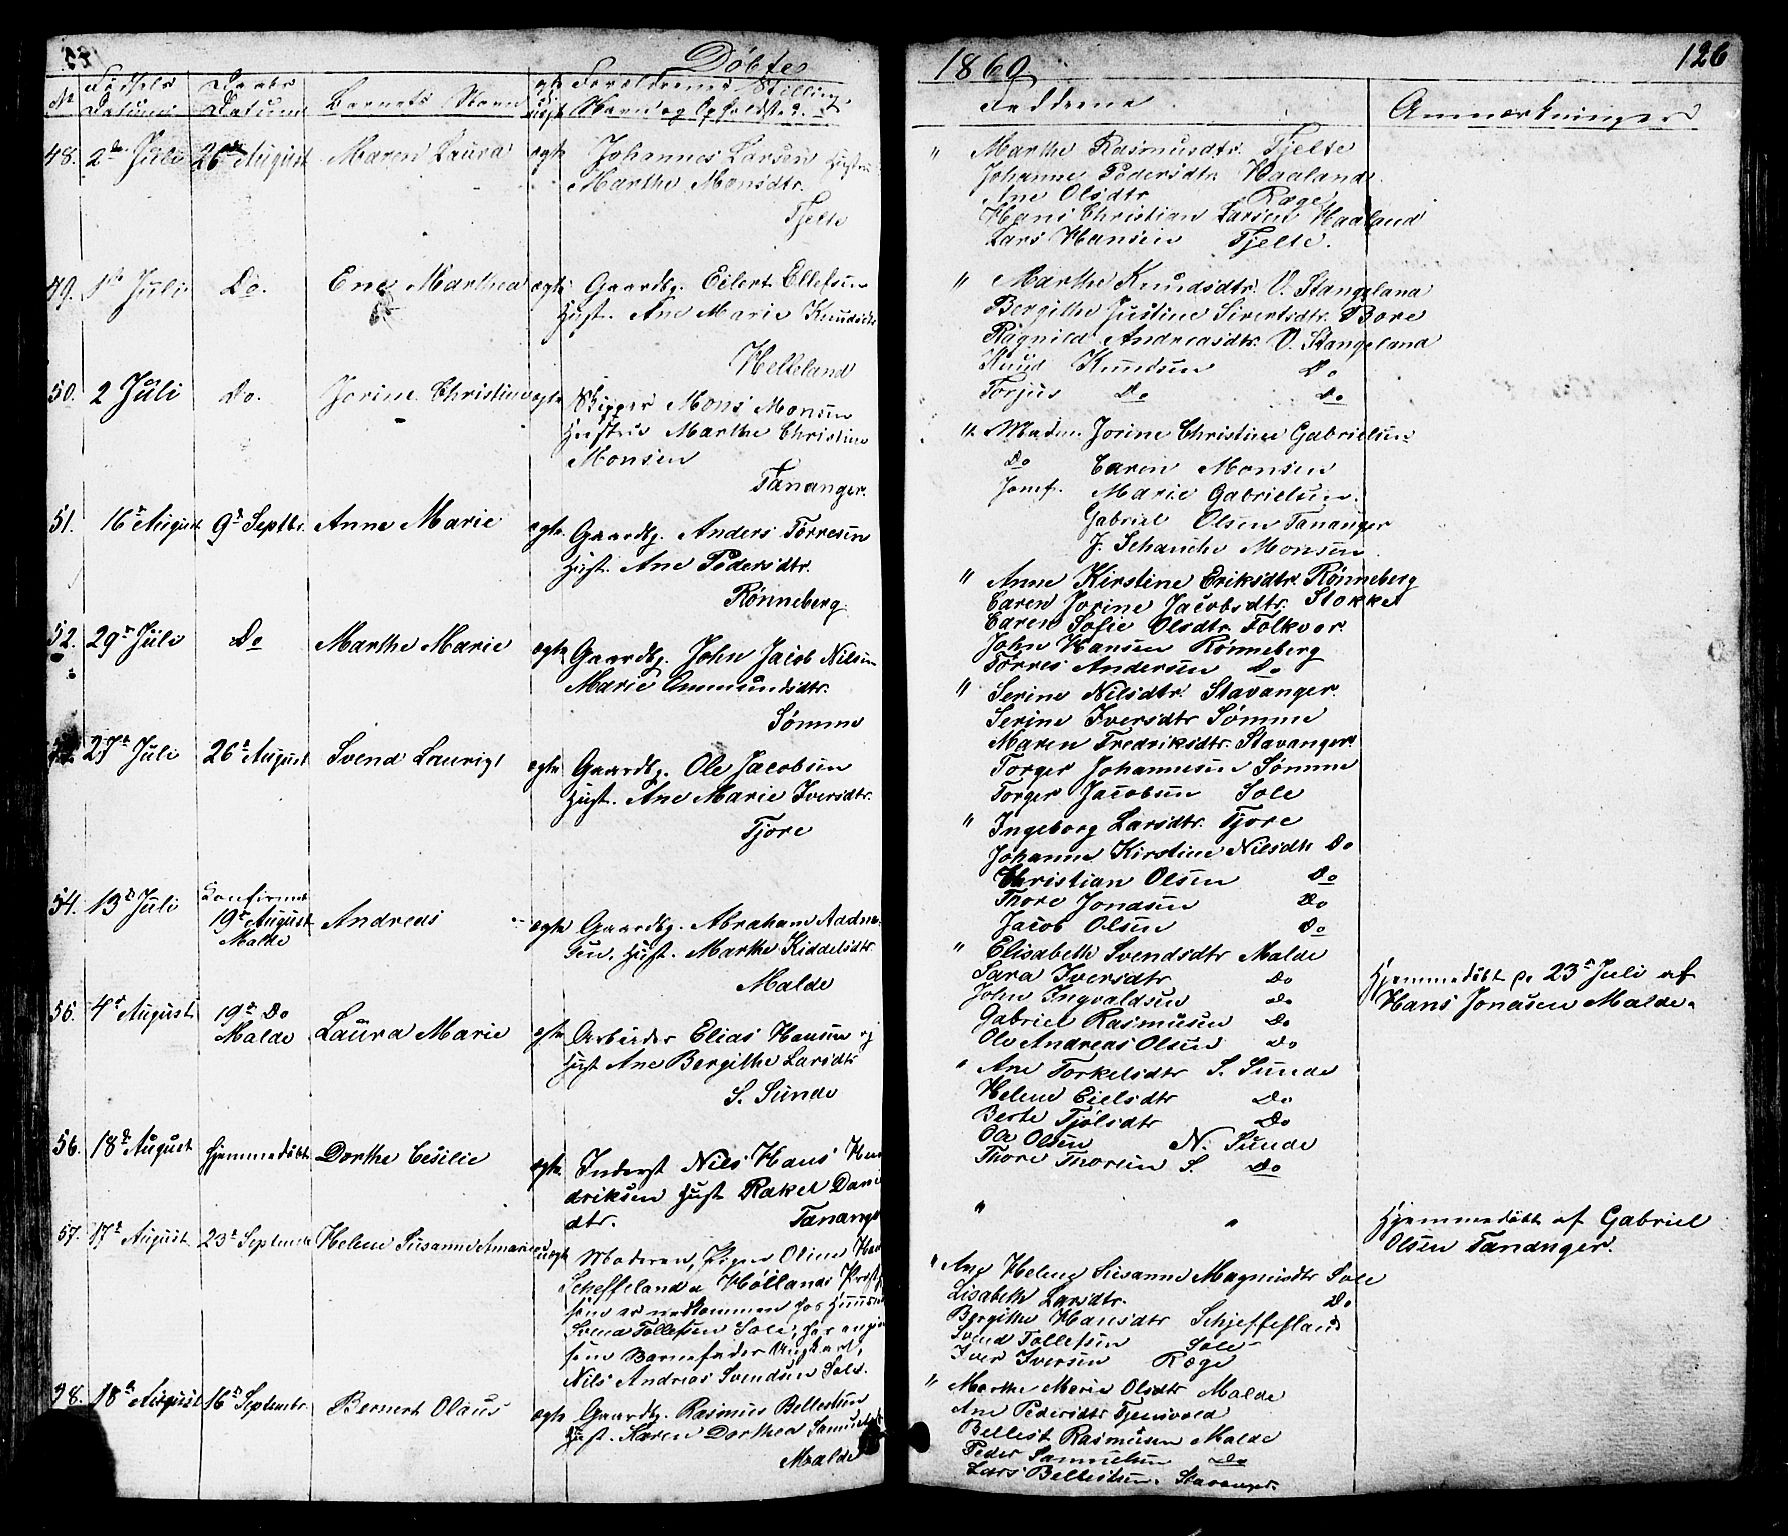 Döbte 1860 126
No Födsels Datum Daabs Datum Barnets Navn Forældrenes Stilling Navn og Opholdst. Faddrene Anmærkninger
48. 2den Juli 26 August Maren Laura ægte Johannes Larsen
Marthe Monsdtr.
Tjelte
" Marthe Rasmusdtr. Tjelte
Johanne Pedersdtr. Haaland
Ane Olsdtr Ræge
Hans Christian Larsen Haaland
Lars Hansen Tjelte.
49. 1st Juli Do. Ene Marthea ægte Gaardbg. Eilert Ellefsen
Hust. Ane Marie Knudsdtr
Helleland
" Marthe Knudsdtr. V. Stangeland
Bergithe Justine Sivertsdtr. Bore
Ragnild Andreasdtr. V. Stangeland
Knud Knudsen Do
Torjus Do Do
50. 2 Juli Do. Jorine Christine ægte Skipper Mons Monsen
Hustru Marthe Christine
Monsen
Tananger.
" Madm. Jorine Christine Gabrielsen
Do Caren Monsen
Jomf. Marie Gabrielsen
Gabriel Olsen Tananger
J. Schanche Monsen
51. 16r August 9d Septbr. Anne Marie ægte Gaardbg. Anders Torresen
Hust. Ane Pedersdtr.
Rønneberg.
" Anne Kirstine Eriksdtr. Rønneberg
Caren Jorine Jacobsdtr. Stokke
Caren Sofie Olsdtr. Tolkvor
John Hansen Rønneberg
Torres Andersen Do
52. 29r Juli Do Marthe Marie ægte Gaardbg. John Jacob Nilsen
Marie Ommundsdtr.
Sömme
" Serine Nilsdtr. Stavanger.
Serine Iversdtr Sömme
Maren Fredriksdtr. Stavanger.
Torger Johannesen Sömme
Torger Jacobsen Sole
27r Juli 26r August Svend Laurigt ægte Gaardbg. Ole Jacobsen
Hust. Ane Marie Iversdtr.
Tjore
" Ingeborg Larsdtr. Tjore
Johanne Kirstine Nilsdtr Do
Christian Olsen Do
Thore Jonasen Do
Jacob Olsen Do
54. 13d Juli Confirmet
19r August
Malde
Andreas ægte Gaardbg. Abraham Aadne-
sen, Hust. Marthe Kiddelsdtr.
Malde
" Elisabeth Svendsdtr Malde
Sara Iversdtr Do
John Ingvaldsen Do
Gabriel Rasmusen Do
Ole Andreas Olsen Do
Hjemmedöbt d. 23r Juli af
Hans Jonasen Malde.
55. 4r August 19r Do
Malde
Laura Marie ægte Arbeider Elias Hansen og
Hust Ane Bergithe Larsdtr
S. Sunde
" Ane Torkelsdtr S. Sunde
Helene Eielsdtr Do
Berte Tjölsdtr Do
Ole Olsen N. Sunde
Thore Thorsen S. Do
56. 18d August Hjemmedöbt Dorthe Cesilie ægte Inderst Nils Hans Hen
driksen Hust Rakel Dani
dtr. Tanange
" "
Hjemmedöbt af Gabriel
Olsen Tananger.
57. 17r August 23r Septembr Helene Susanne Amarie uægte Moderen, Pigen Oline Han
Scheffeland a Höilands Prest
som er nedkommen hos Huusm
Svend Tollefsen Sole, har angiv
som Barnefader Ungkarl,
Nils Andreas Svendsen Sole.
" Ane Helene Susanne Magnusdtr Sole
Lisabeth Larsdtr. Do
Bergithe Hansdtr Schjeffeland
Svend Tollefsen Sole
Iver Iversen Ræge
58. 18r August 16d Septembr Bernert Olaus ægte Gaardbg. Rasmus Bellestsen
Hust. Karen Dorthea Samuelsdt
Malde
" Marthe Maria Olsdtr Malde
Ane Pedersdtr Tjensvold
Bellest Rasmusen Malde
Peder Samuelsen Do
Lars Bellestsen. Stavanger.